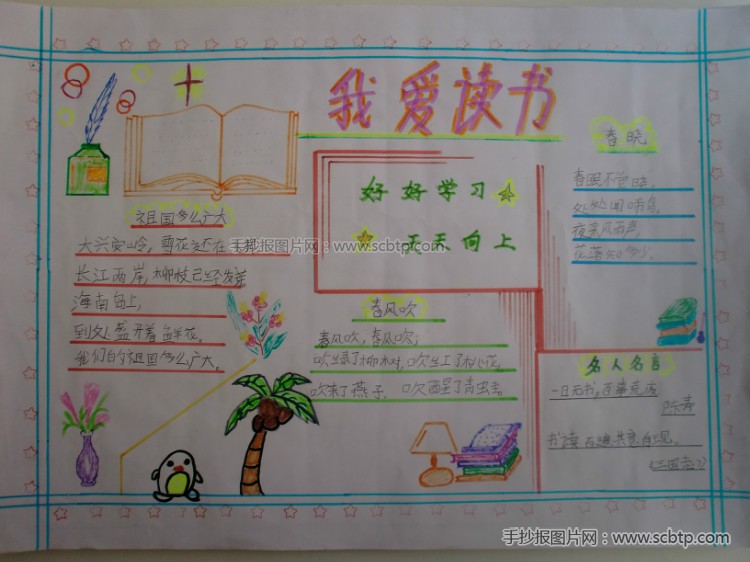 我爱读书
祖国多么广大
大兴安岭,雪花还在
手抄报图片网:www.scbtp.com
长江两岸,柳枝已经发芽
海南岛上,
到处盛开着鲜花。
我们的祖国多么广大。
好好学习
天天向上
春风吹
春风吹,春风吹,
吹绿了柳树,吹红了桃花,
吹来了燕子,吹醒了青蛙。
春晓
春眠不觉晓,
处处闻啼鸟,
夜来风雨声,
花落知多少。
名人名言
一日无书,百事荒废
陈寿
书读百遍其意自现。
《三国志》
手抄报图片网:www.scbtp.com